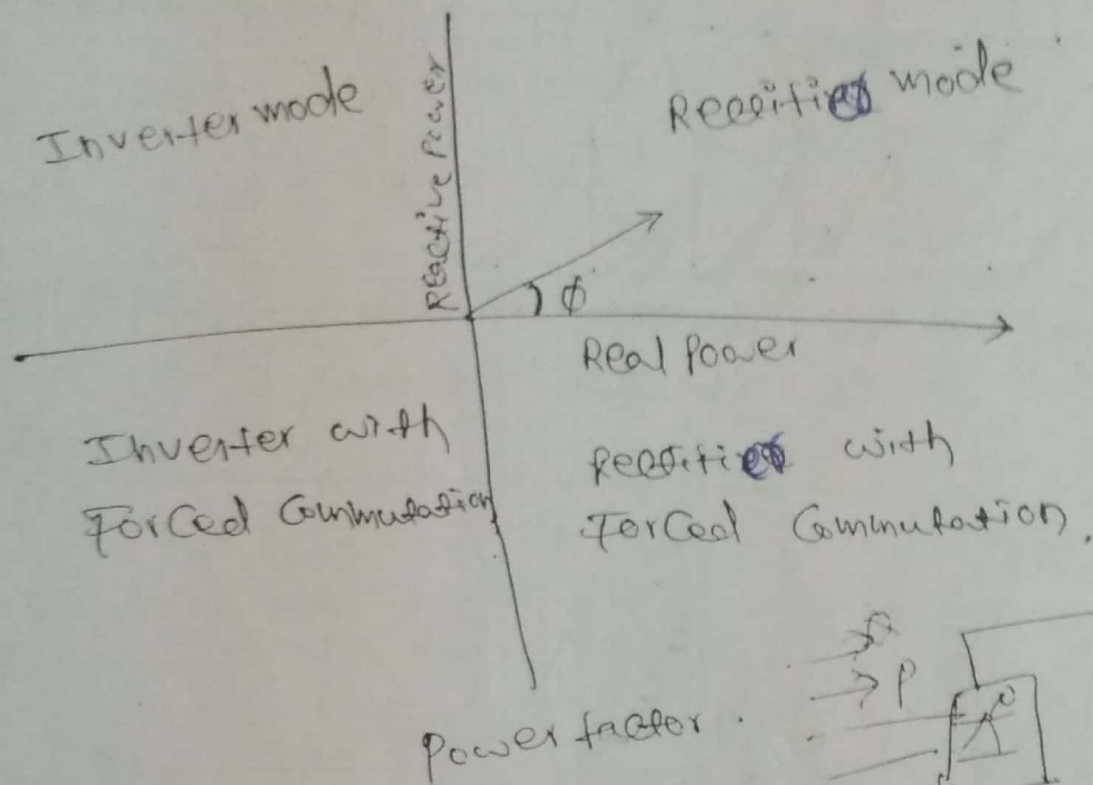 Inverter mode
Rectifier mode
Reactive Power
ϕ
Real Power
Inverter with
Forced Commutation
Rectifier with
Forced Commutation.
Power factor.
Q
P